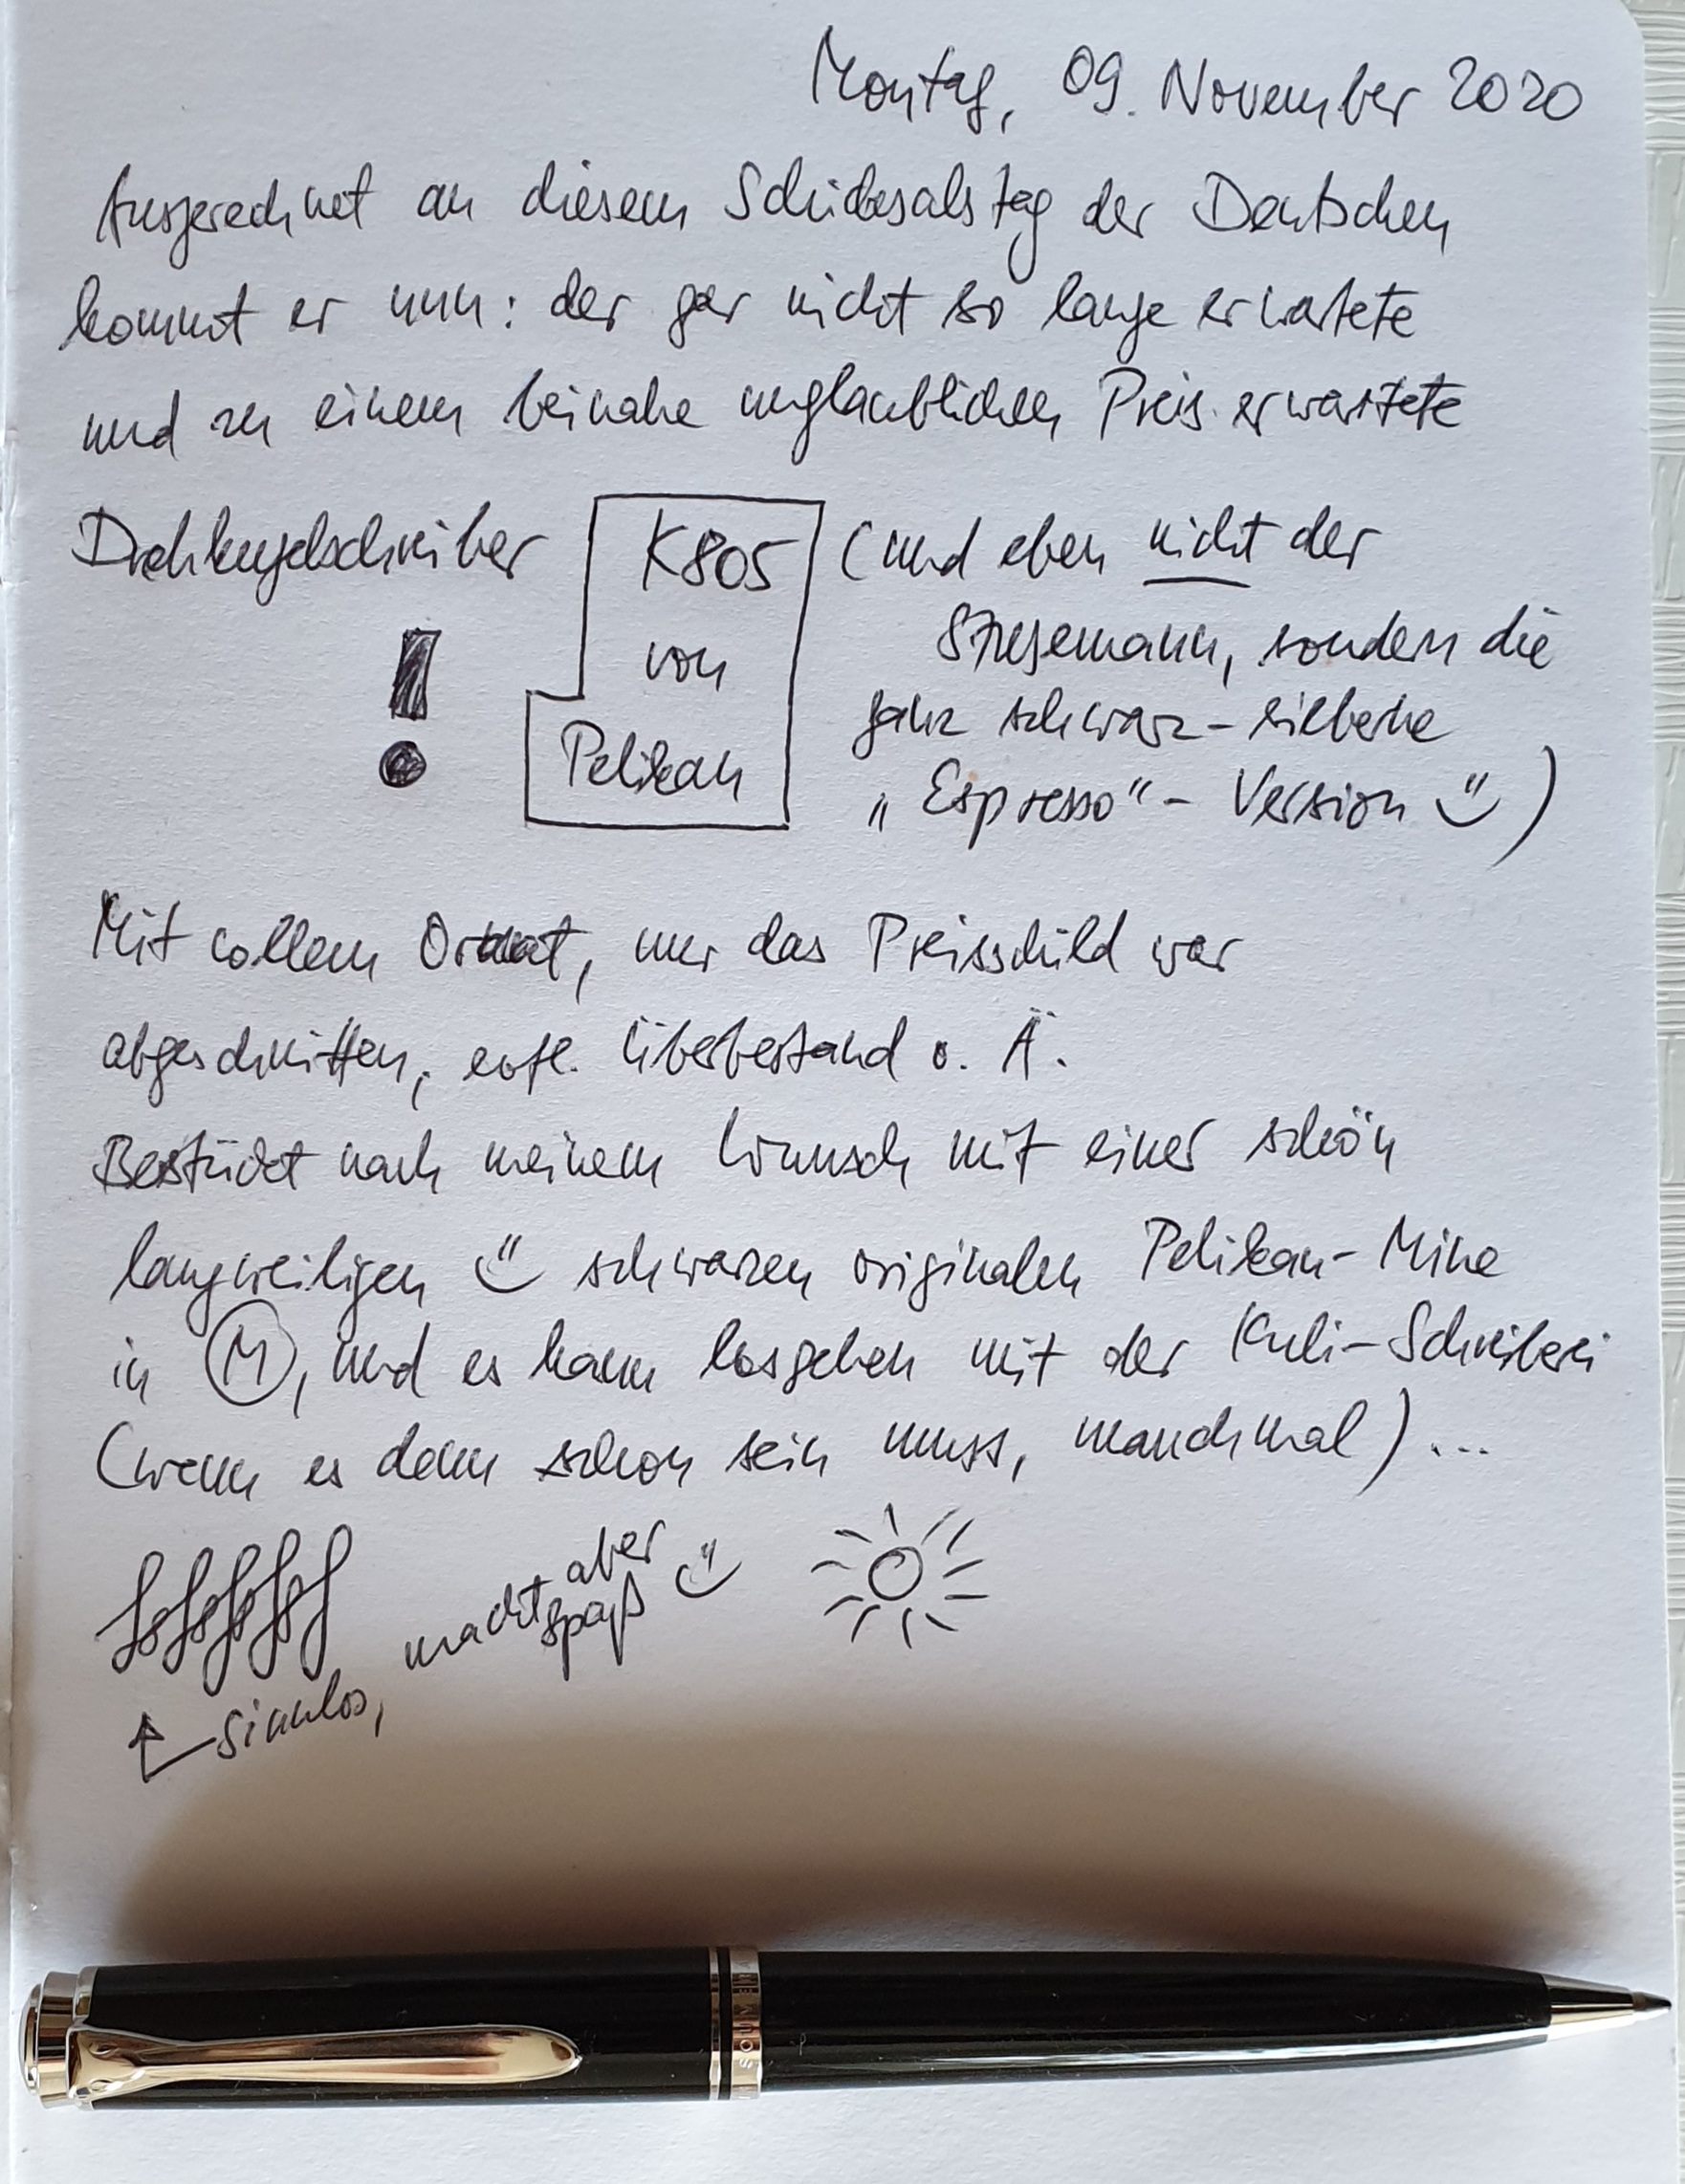 Montag, 09. November 2020
Ausgerechnet an diesem Schicksalstag der Deutschen
kommt er nun: der gar nicht so lange erwartete
und zu einem beinahe unglaublichen Preis erwartete
Drehkugelschreiber
!
K805
von
Pelikan
(und eben nicht der
Stresemann, sondern die
ganz schwarz-silberne
„Espresso“-Version
)
Mit vollem Ornat, nur das Preisschild war
abgeschnitten, evtl. Überbestand o. Ä.
Bestückt nach meinem Wunsch mit einer schön
langweiligen schwarzen originalen Pelikan-Mine
in M, und es kann losgehen mit der Kuli-Schreiberei
(wenn es denn schon sein muss, manchmal)...
sinnlos, macht aber
Spaß
SOUVERÄ